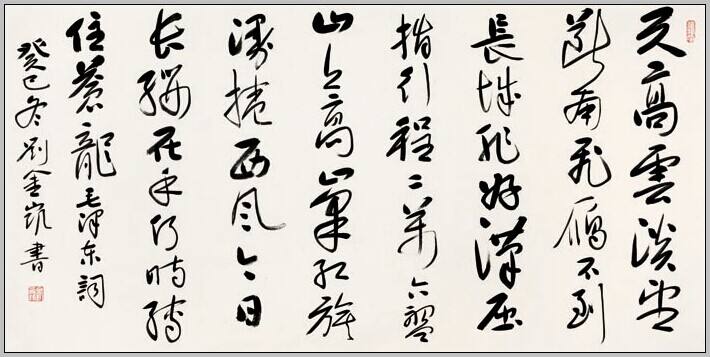 天高雲淡望
斷南飛雁不到
長城非好漢屈
指行程二萬六盤
山上高峯紅旗
漫捲西風今日
长纓在手何時縛
住蒼龍毛澤东詞
癸巳冬劉金凱書